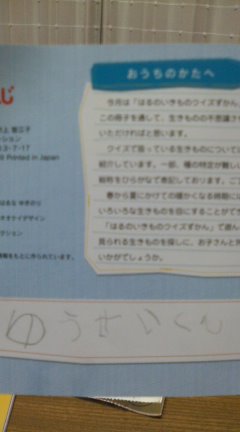 じ
おうちのかたへ
智江子
クション
3-7-17
Printed in Japan
ゆきのり
オデザイン
クション
情報をもとに作られています。
今月は「はるのいきものクイズずかん」
この冊子を通して、生きものの不思議さ
いただければと思います。
クイズで扱っている生きものについては
紹介しています。一部、種の特定が難しい
総称をひらがなで表記しております。ご
春から夏にかけての暖かくなる時期には
いろいろな生きものを目にすることがで
「はるのいきものクイズずかん」で遊ん
見られる生きものを探しに、お子さんと
いかがでしょうか。
ゆうせいくん